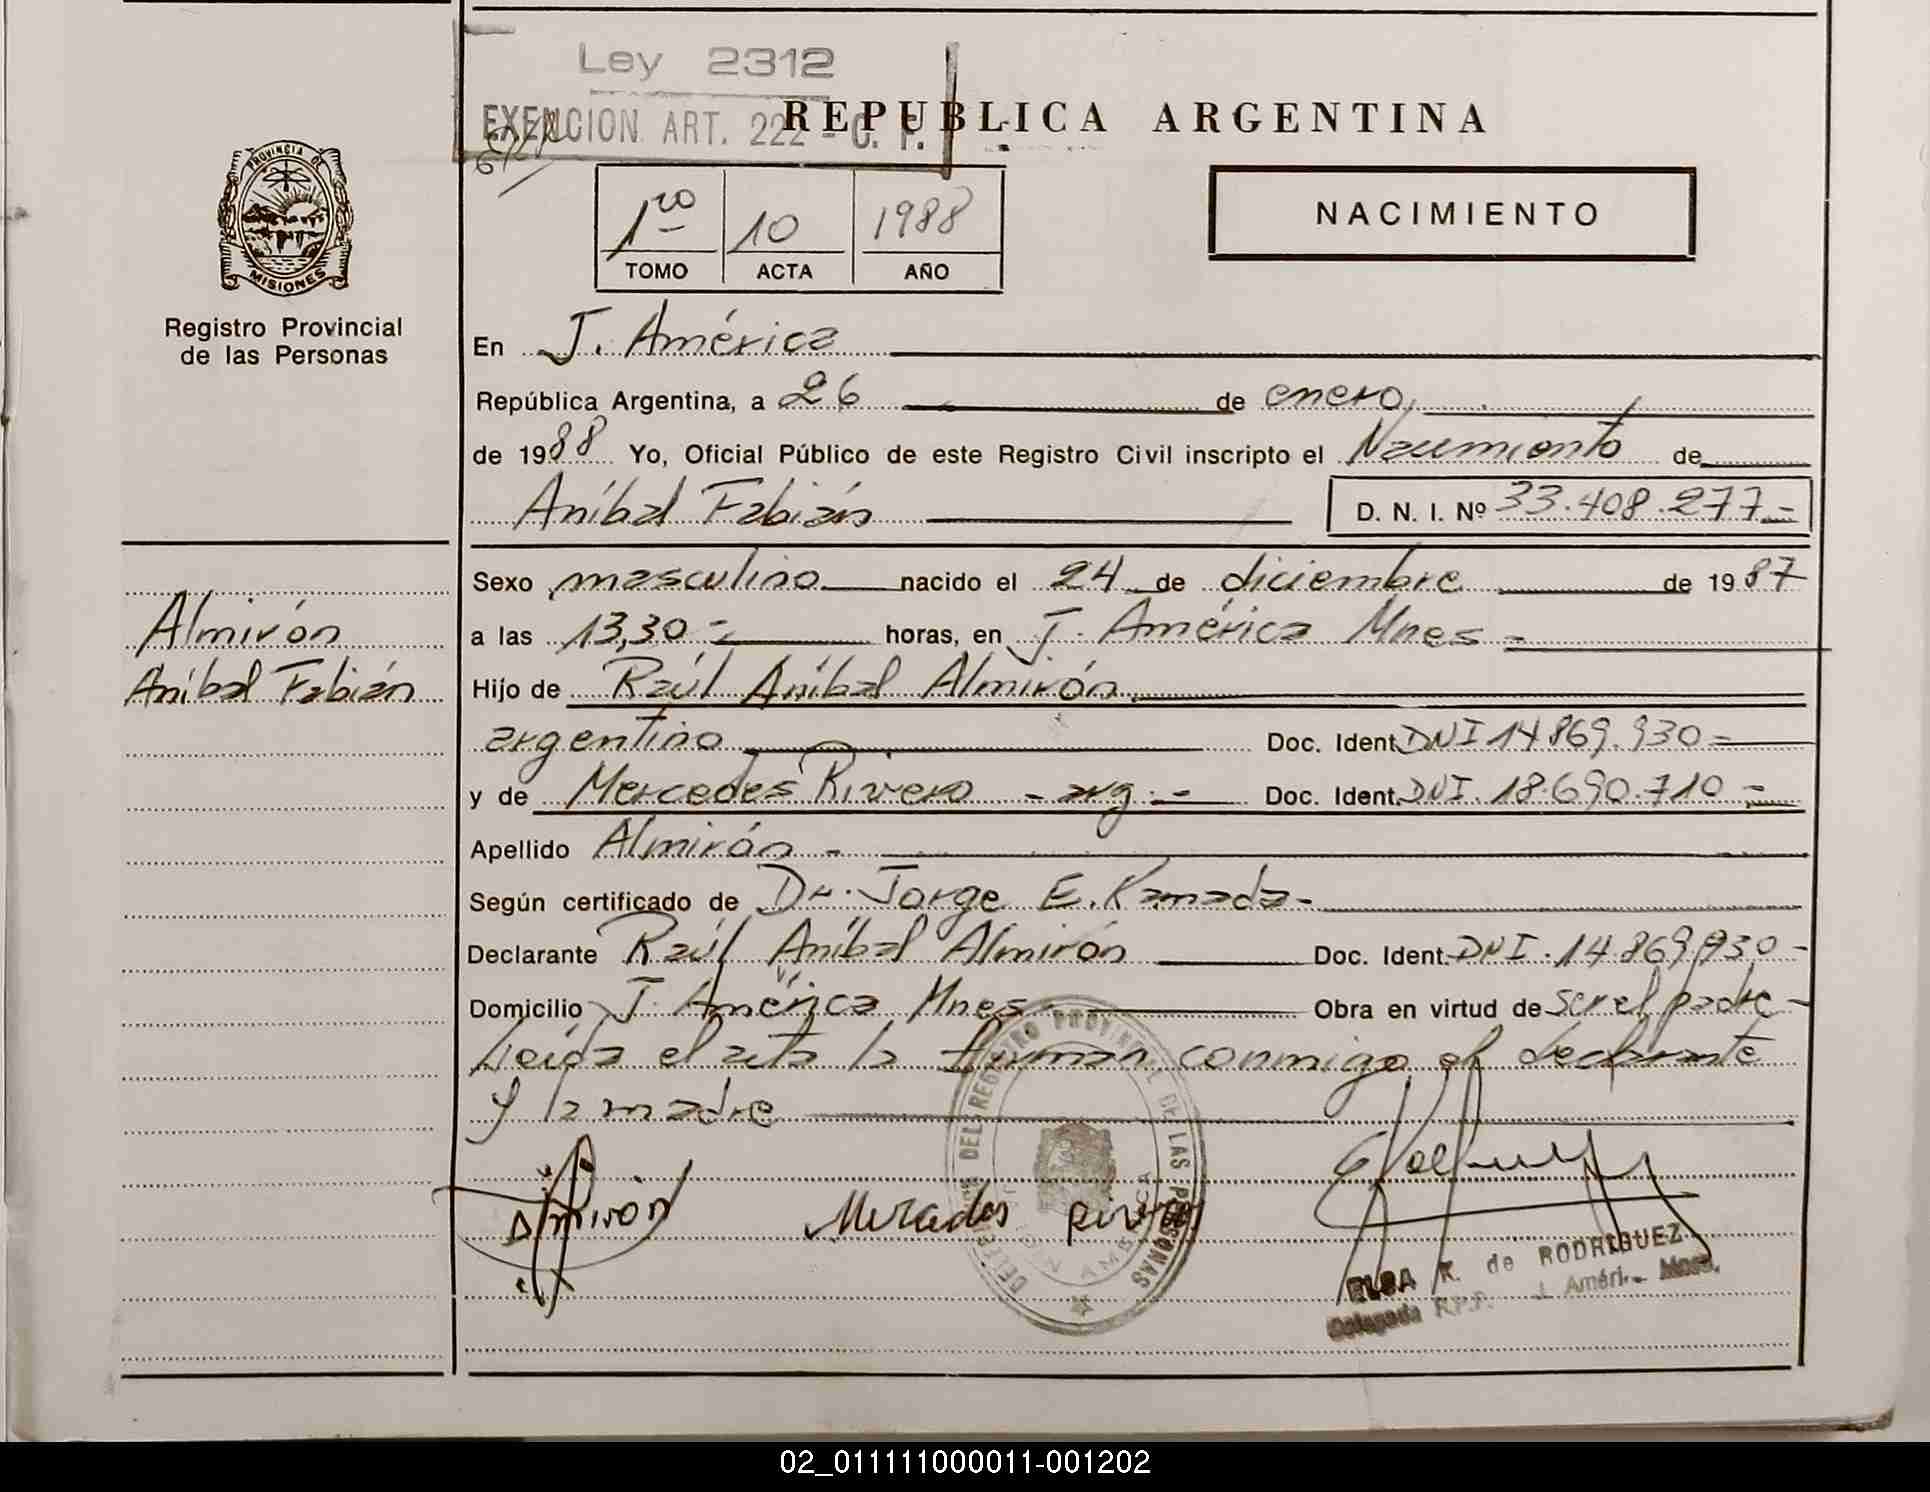 Ley 2312
EXENCION ART. 222 - C. F.
REPUBLICA ARGENTINA
PROVINCIA DE
MISIONES
Registro Provincial
de las Personas
1ro 10 1988
TOMO ACTA AÑO
NACIMIENTO
En J. América
República Argentina, a 26 de enero
de 1988 Yo, Oficial Público de este Registro Civil inscripto el Nacimiento de
Aníbal Fabián D. N. I. Nº 33.408.277.-
Sexo masculino nacido el 24 de diciembre de 1987
a las 13,30 - horas, en J. América Mnes -
Almirón
Aníbal Fabián
Hijo de Raúl Aníbal Almirón
argentino Doc. Ident. DNI 14.869.930 -
y de Mercedes Rivero - arg. - Doc. Ident. DNI. 18.690.710 -
Apellido Almirón -
Según certificado de Dr. Jorge E. Kamada -
Declarante Raúl Aníbal Almirón Doc. Ident. DNI. 14.869.930 -
Domicilio J. América Mnes - Obra en virtud de ser el padre -
Leída el acta la firman conmigo el declarante
y la madre
DEL REGISTRO PROVINCIAL DE LAS PERSONAS
Almirón
Mercedes
ELSA K. de RODRIGUEZ
Delegada R.P.P. J. Améri. Mnes.
02_011111000011-001202